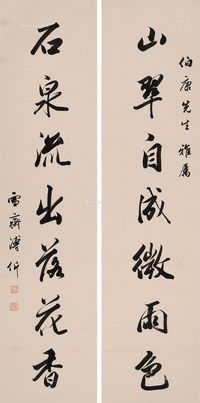 山翠自成微雨色
伯康先生雅屬
石泉流出落花香
雪齋溥伒